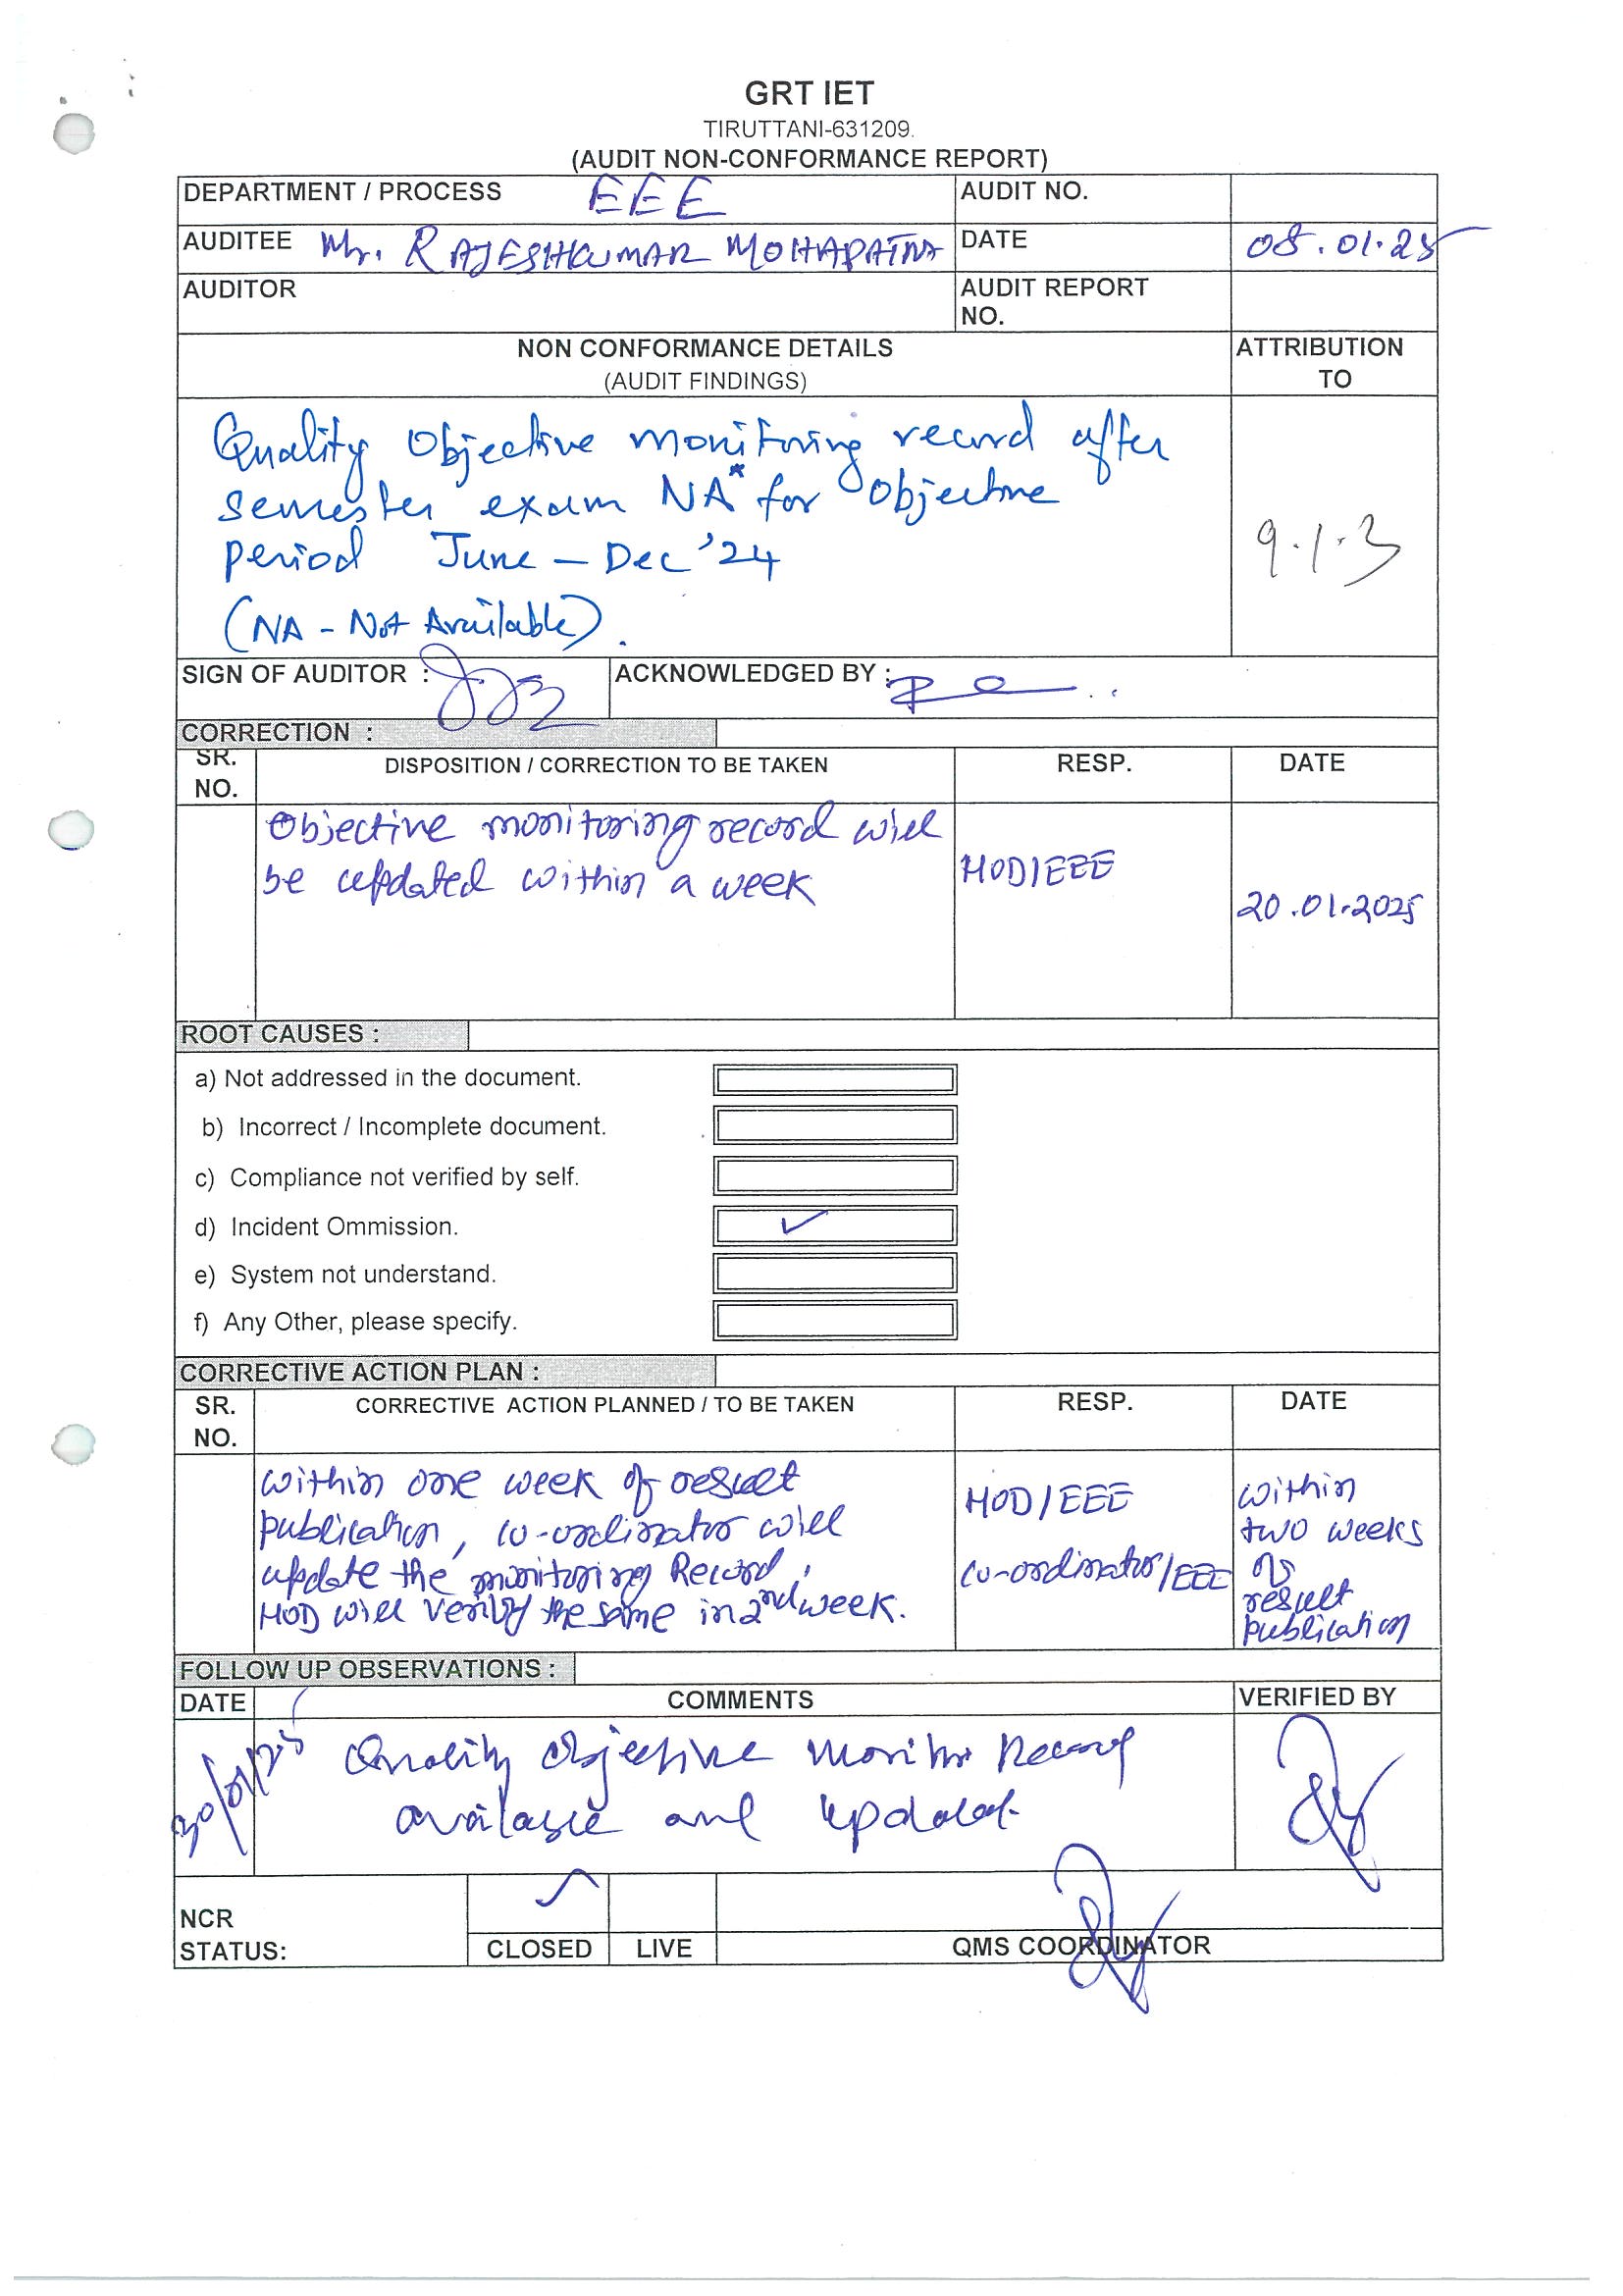 GRT IET
TIRUTTANI-631209.
(AUDIT NON-CONFORMANCE REPORT)
DEPARTMENT / PROCESS EEE AUDIT NO.
AUDITEE Mr. RAJESHKUMAR MOHAPATRA DATE 08.01.25
AUDITOR AUDIT REPORT
NO.
NON CONFORMANCE DETAILS ATTRIBUTION
(AUDIT FINDINGS) TO
Quality Objective monitoring record after
semester exam NA* for Objective
period June - Dec '24 9.1.3
(NA - Not Available).
SIGN OF AUDITOR : ACKNOWLEDGED BY :
CORRECTION :
SR. DISPOSITION / CORRECTION TO BE TAKEN RESP. DATE
NO.
Objective monitoring record will
be updated within a week HOD/EEE 20.01.2025
ROOT CAUSES :
a) Not addressed in the document.
b) Incorrect / Incomplete document.
c) Compliance not verified by self.
d) Incident Ommission. ✓
e) System not understand.
f) Any Other, please specify.
CORRECTIVE ACTION PLAN :
SR. CORRECTIVE ACTION PLANNED / TO BE TAKEN RESP. DATE
NO.
within one week of result HOD/EEE within
publication, co-ordinator will two weeks
update the monitoring Record, co-ordinator/EEE of
HOD will verify the same in 2nd week. result
publication
FOLLOW UP OBSERVATIONS :
DATE COMMENTS VERIFIED BY
30/01/25 Quality Objective Monitor Record
available and updated.
NCR
STATUS: CLOSED LIVE QMS COORDINATOR